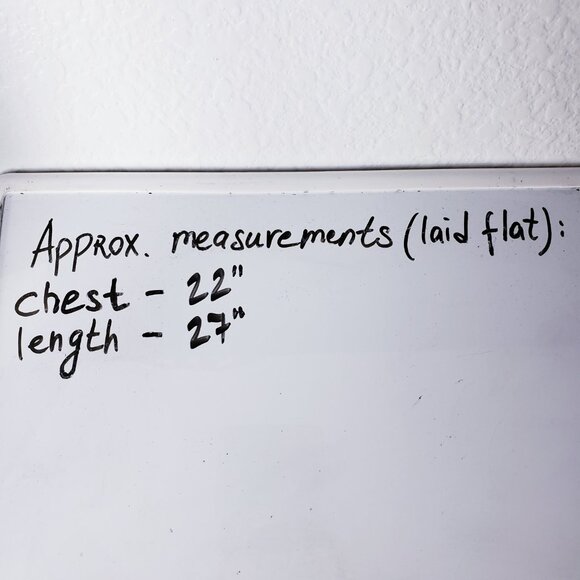 Approx. measurements (laid flat):
chest - 22"
length - 27"